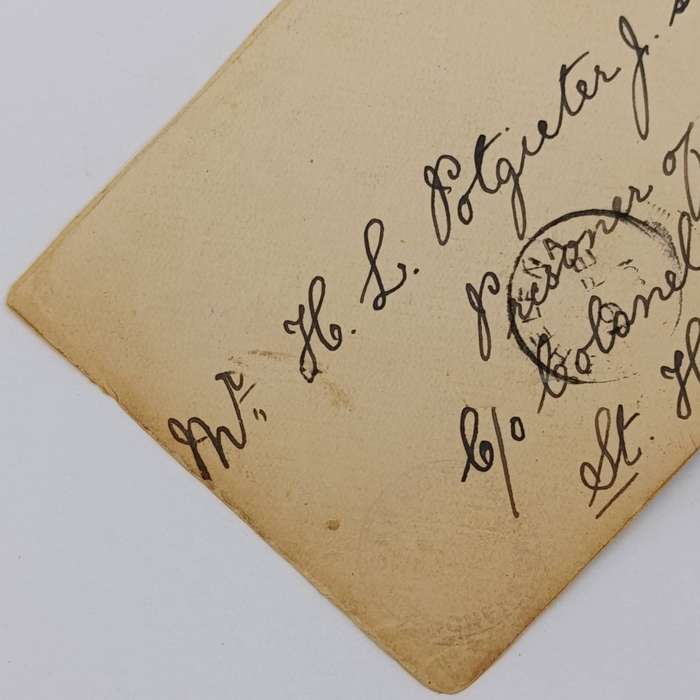 Mr H. L. Potgieter J. s
Prisoner of
C/o Colonel
St. H